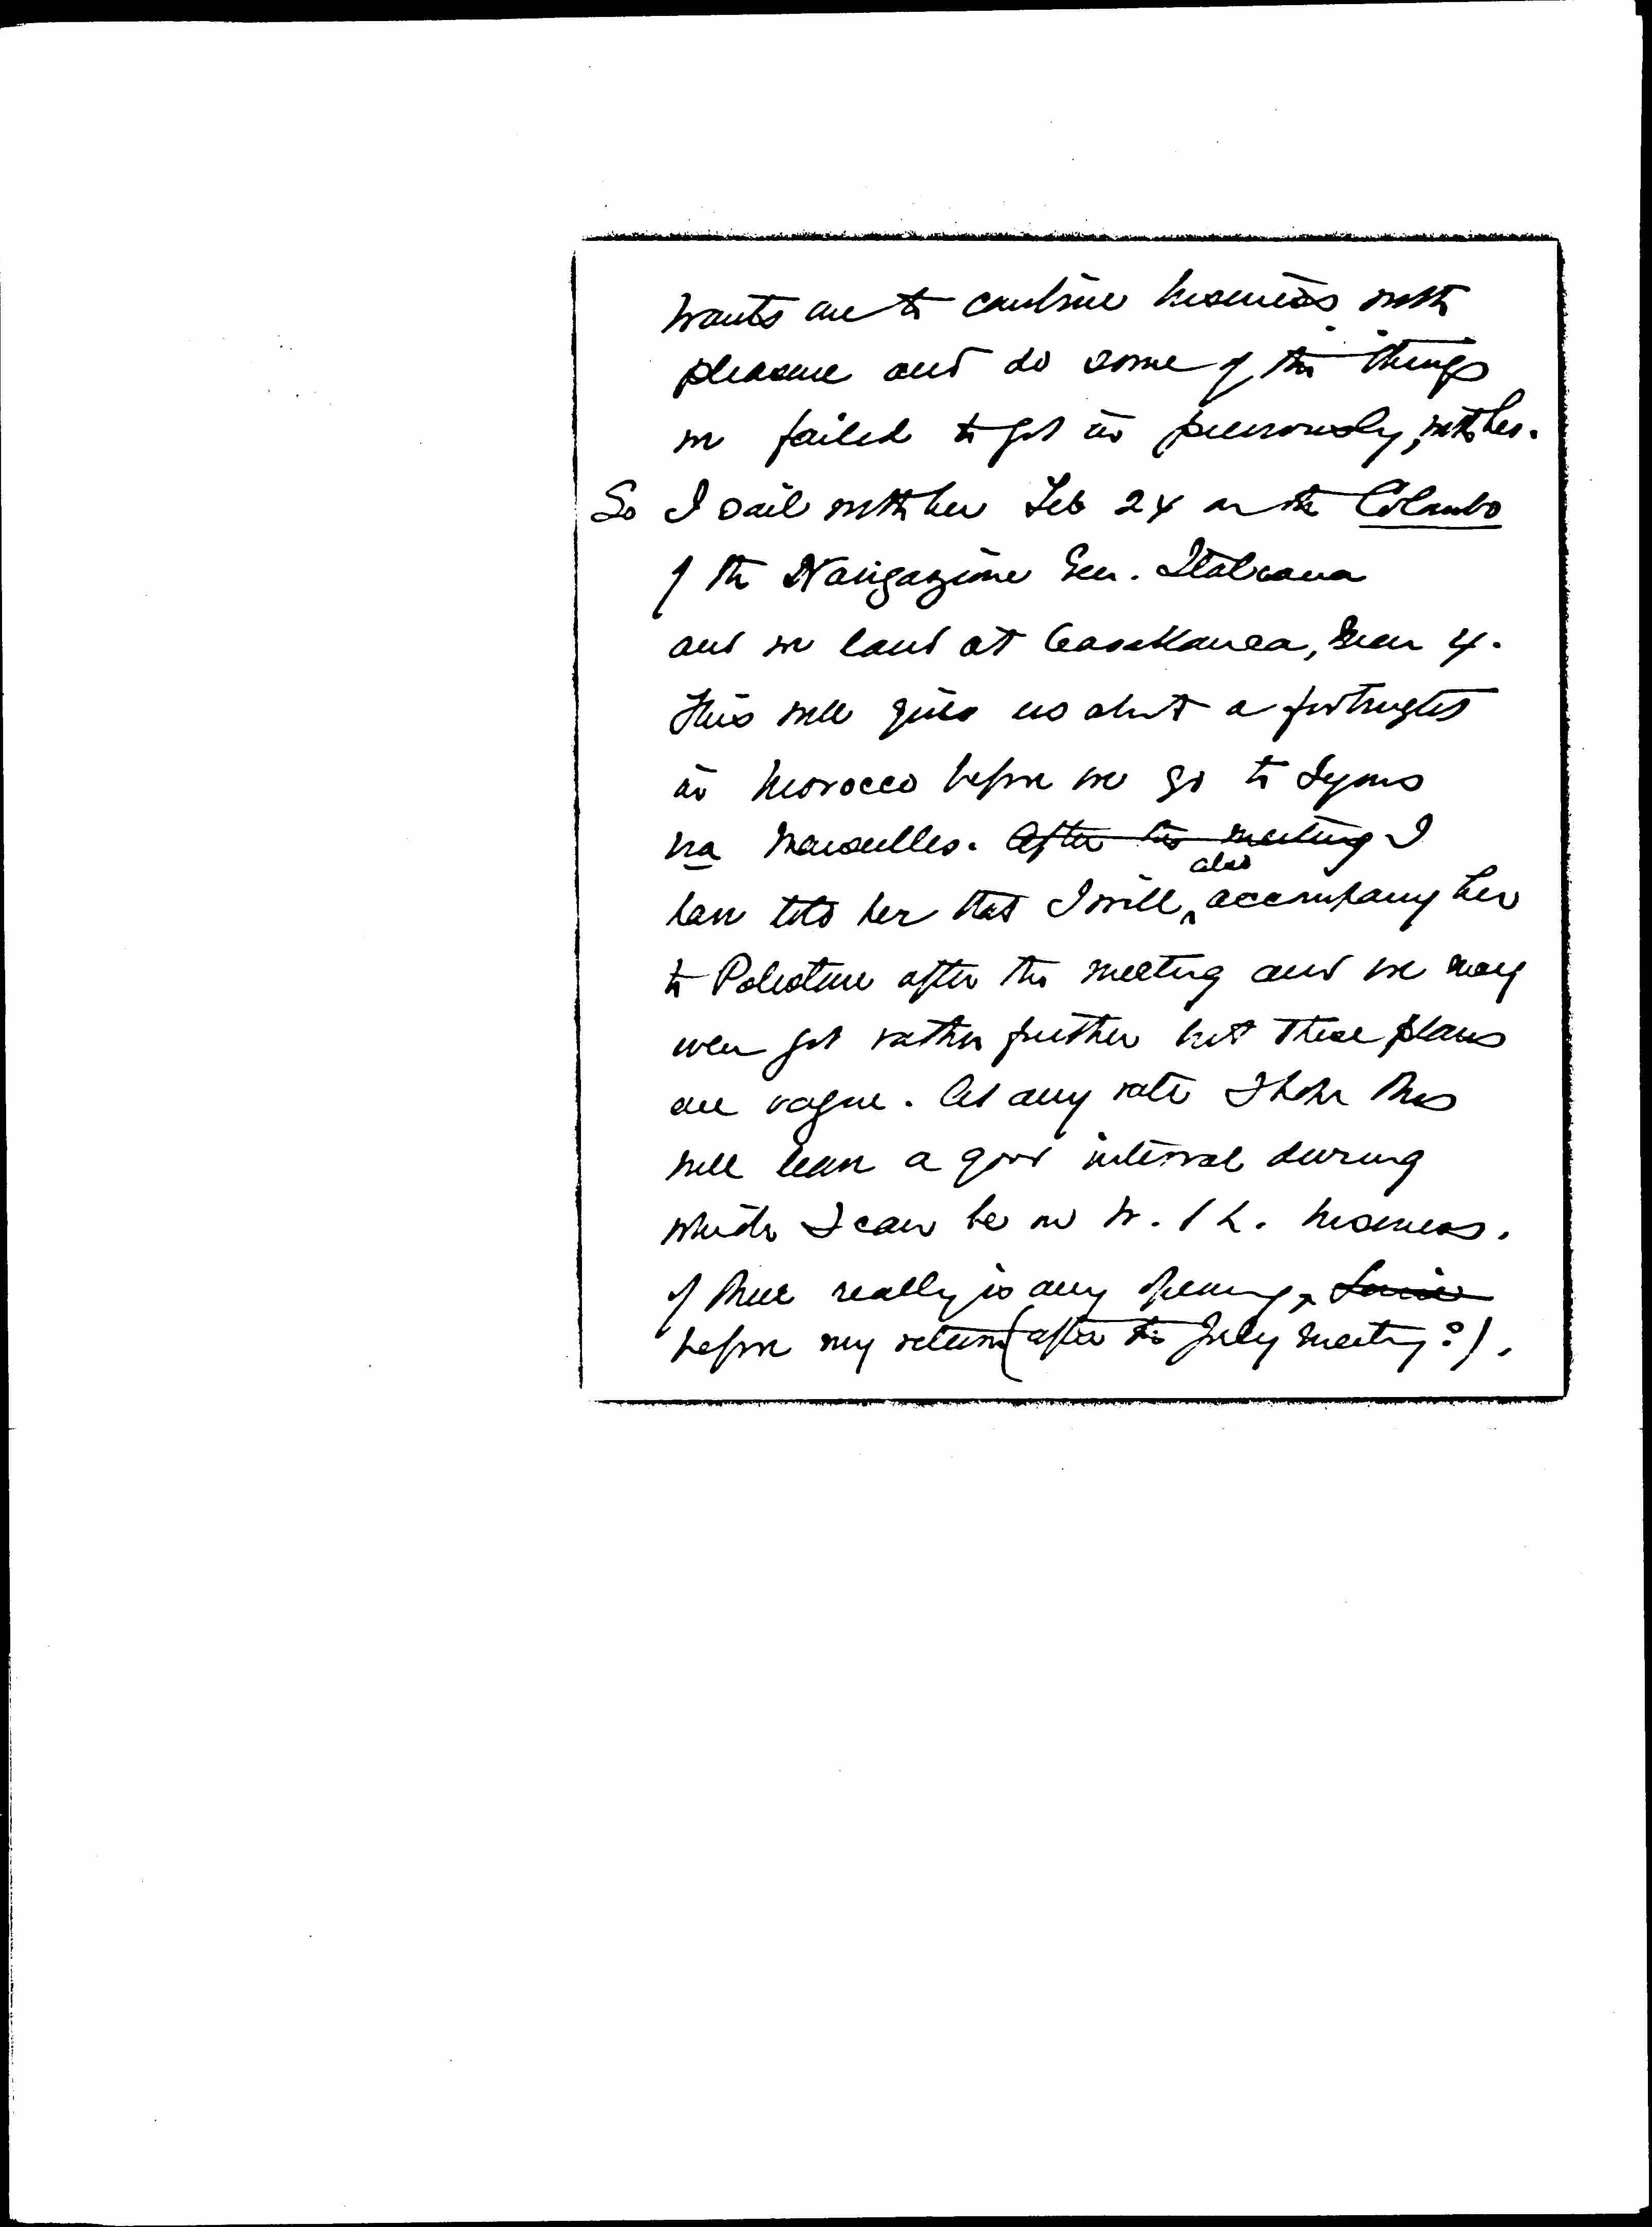 wants me to combine business with
pleasure and do some of the things
we failed to get in previously, with her.
So I sail with her Feb 24 on the Colombo
of the Navigazione Gen. Italiana
and we land at Casablanca, Mar 4.
This will give us about a fortnight
in Morocco before we go to Lyons
via Marseilles. After the meeting I
have told her that I will also accompany her
to Palestine after the meeting and we may
even get rather further but these plans
are vague. At any rate I hope this
will leave a good interval during
which I can be on W. I. L. business.
if there really is any opening,
before my return (after the July meeting?).